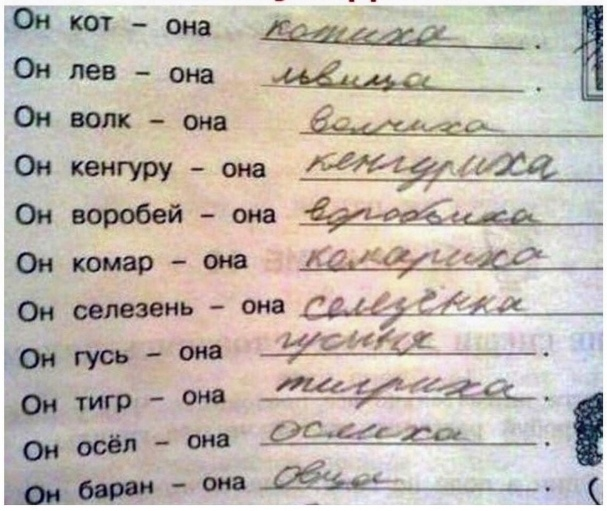 Он кот – она котиха.
Он лев – она львица.
Он волк – она волчиха
Он кенгуру – она кенгуриха
Он воробей – она воробьиха
Он комар – она комариха
Он селезень – она селезёнка
Он гусь – она гусиня.
Он тигр – она тигриха.
Он осёл – она ослиха.
Он баран – она овца.